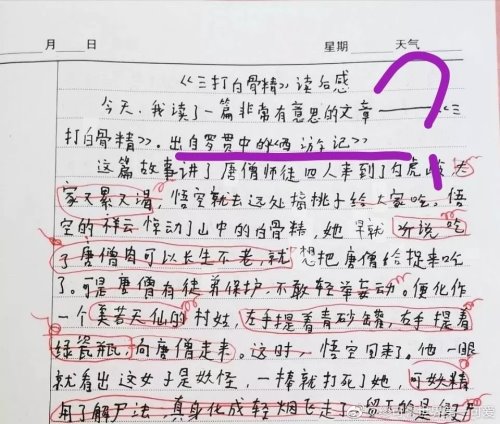 月 日 星期 天气
《三打白骨精》读后感
今天,我读了一篇非常有意思的文章——《三
打白骨精》。出自罗贯中的《西游记》
这篇故事讲了唐僧师徒四人来到了白虎
家又累又渴,悟空就去远处摘桃子给大家吃。悟
空的祥云惊动了山中的白骨精,她早就听说吃
了唐僧肉可以长生不老,就想把唐僧给捉来吃
了。可是唐僧有徒弟保护,不敢轻举妄动。便化作
一个美若天仙的村姑,左手提着青砂罐,右手提着
绿瓷瓶,向唐僧走来。这时,悟空回来了。他一眼
就看出这女子是妖怪,一棒就打死了她,可妖精
用了解尸法 真身化成轻烟飞走了 留下的是假尸